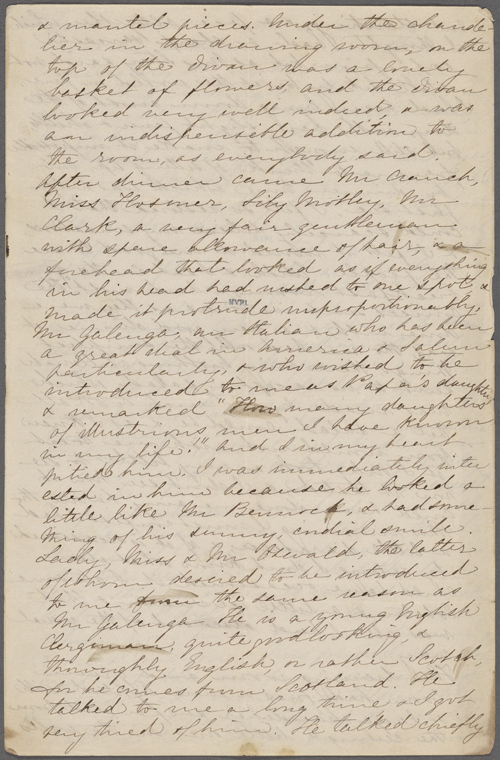 & mantel pieces. Under the chande-
lier in the drawing room, on the
top of the divan was a lovely
basket of flowers, and the divan
looked very well indeed, & was
an indispensible addition to
the room, as everybody said.
After dinner came Mr Cranch,
Miss Hosmer, Lily Motley, Mr
Clark, a very fair gentleman
with spare allowance of hair, & a
forehead that looked as if everything
in his head had rushed to one spot &
made it protrude improportionably,
NYPL
Mr Galenga, an Italian who has been
a great deal in America & Salem
particularly, & who wished to be
introduced to me as Papa's daughter
& remarked "How many daughters
of illustrious men I have known
in my life!" and I in my heart
pitied him. I was immediately inter
ested in him because he looked a
little like Mr Bennoch, & had some
thing of his sunny, cordial smile.
Lady, Miss & Mr Oswald, the latter
of whom desired to be introduced
to me from the same reason as
Mr Galenga. He is a young English
Clergyman, quite goodlooking, &
thoroughly English, or rather Scotch,
for he comes from Scotland. He
talked to me a long time & I got
very tired of him. He talked chiefly